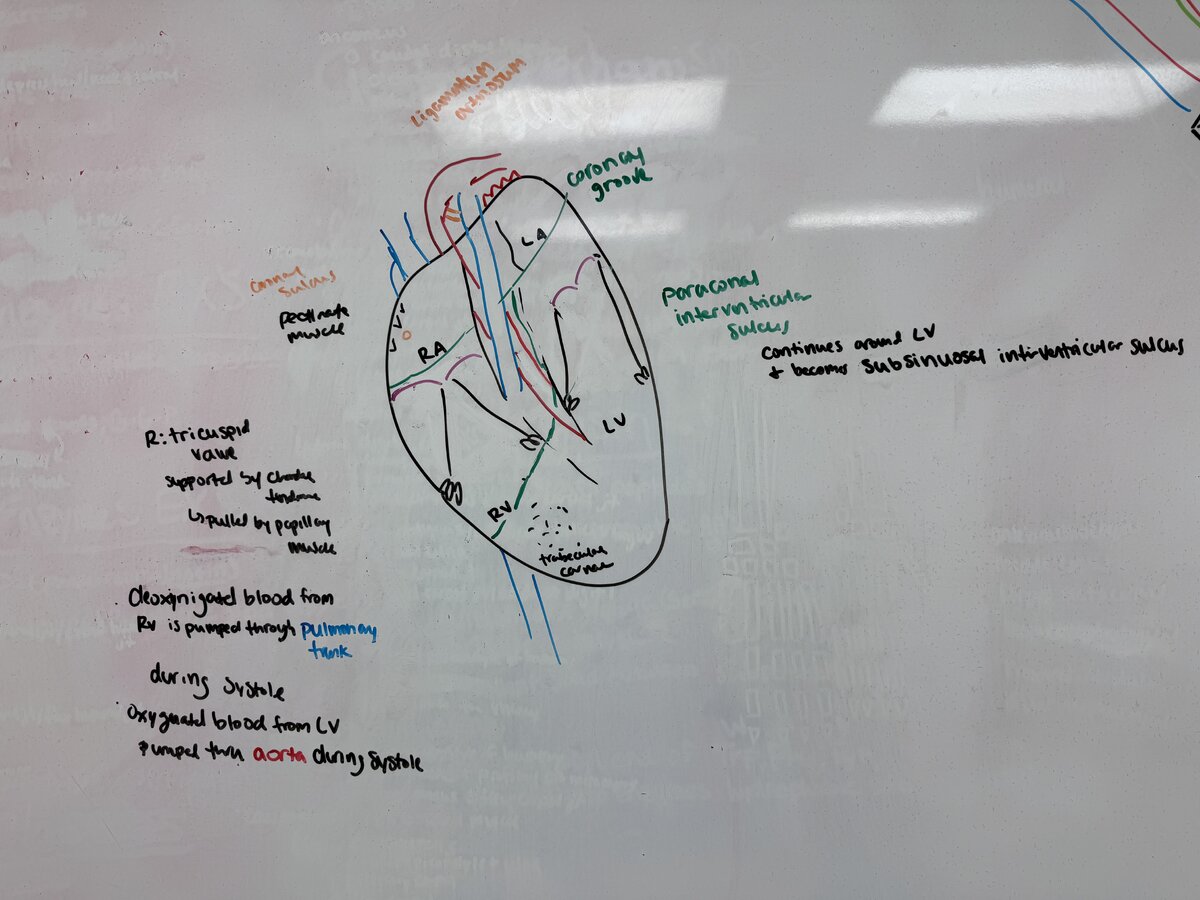 ligamentum
arteriosum
coronary
groove
LA
coronary
sulcus
pectinate
muscle
RA
paraconal
interventricular
sulcus
continues around LV
+ becomes subsinuosal interventricular sulcus
LV
RV
trabeculae
carnae
R: tricuspid
valve
supported by chordae
tendonae
↳ pulled by papillary
muscle
deoxynigated blood from
RV is pumped through pulmonary
trunk
during systole
oxygenated blood from LV
pumped thru aorta during systole